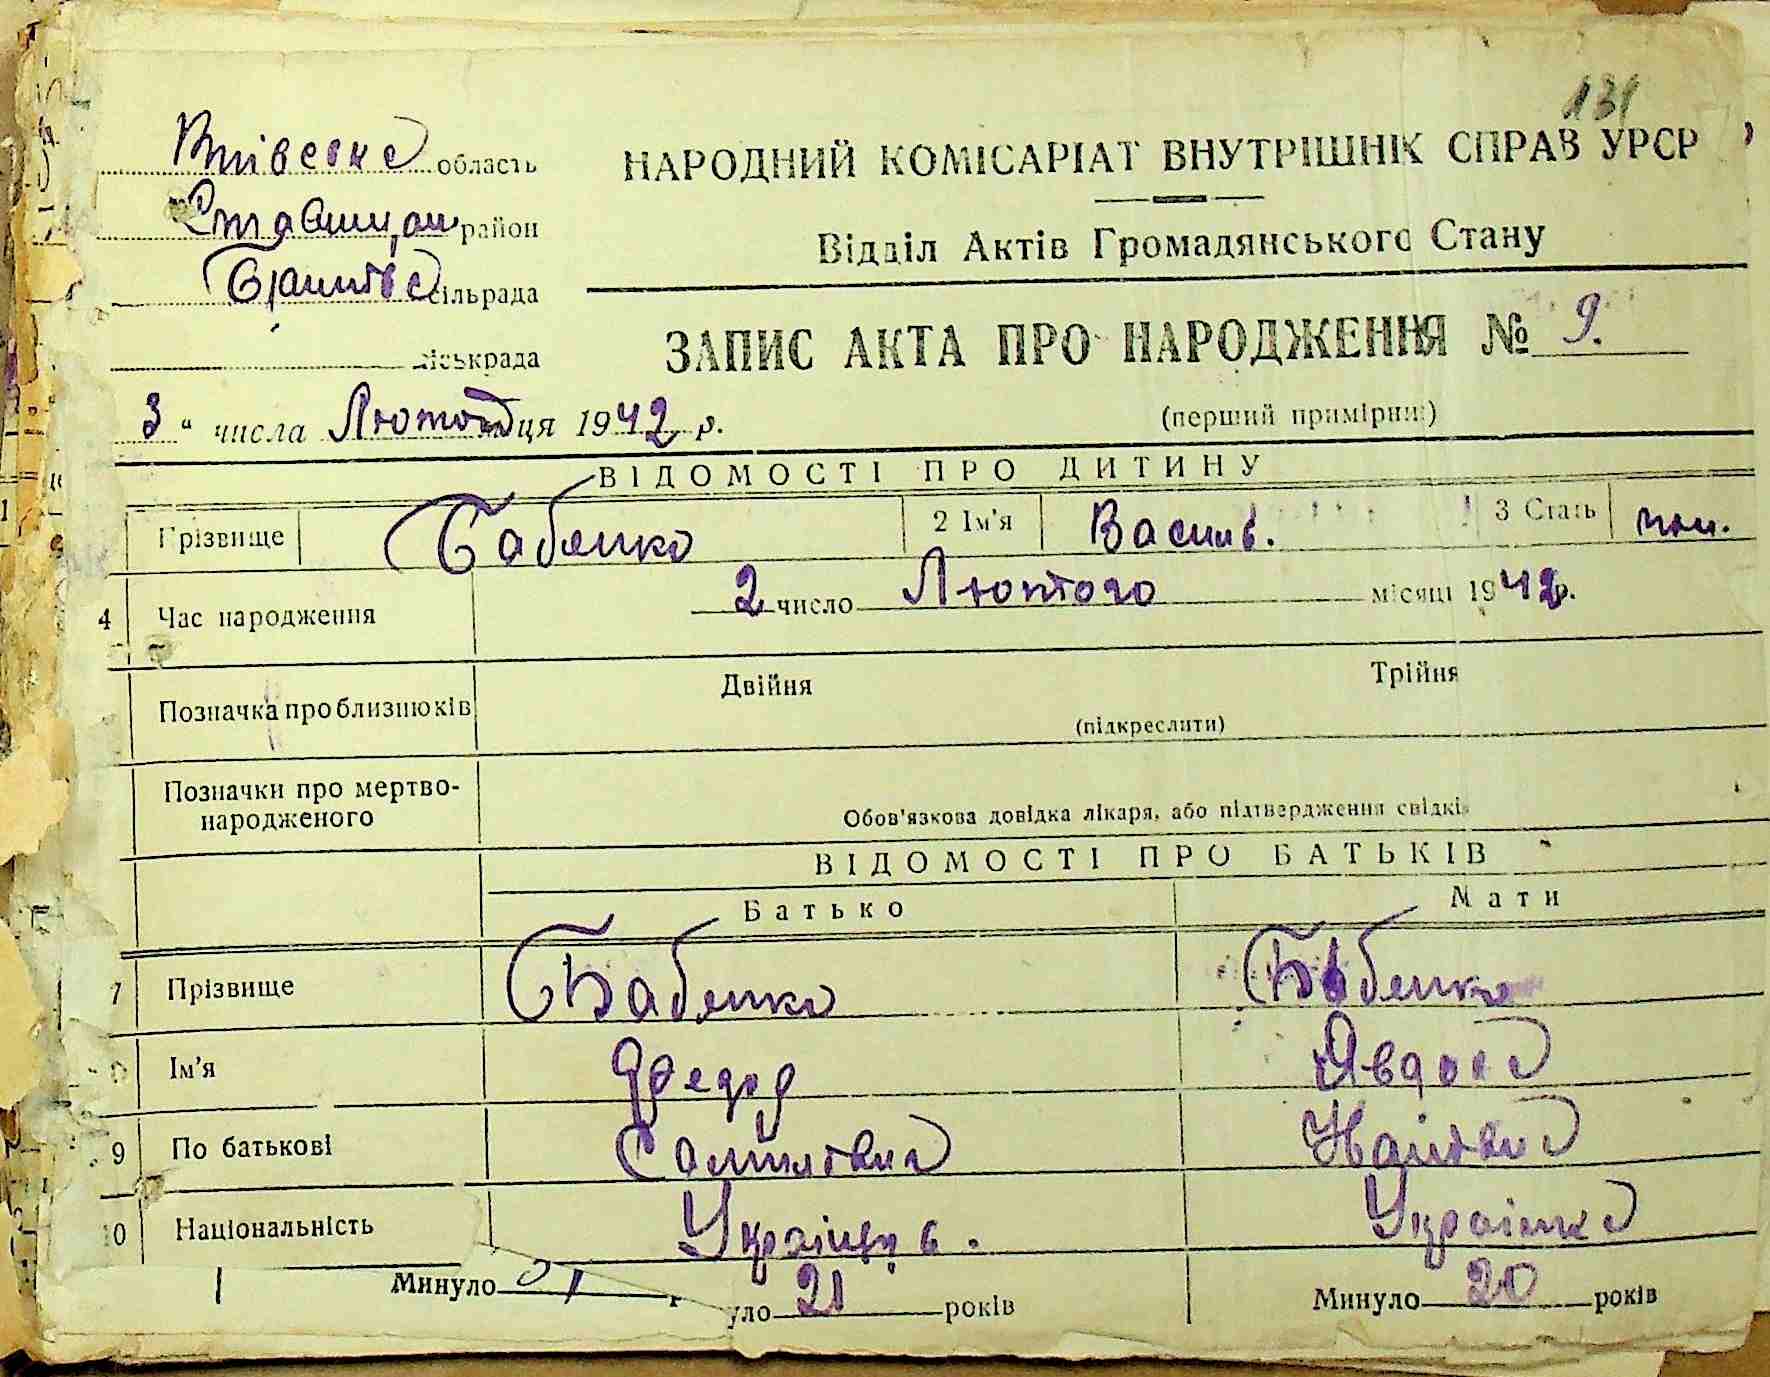 131
область
НАРОДНИЙ КОМІСАРІАТ ВНУТРІШНІХ СПРАВ УРСР
район
Відділ Актів Громадянського Стану
сільрада
ЗАПИС АКТА ПРО НАРОДЖЕННЯ № 9.
міськрада
3 " числа Лютого ця 1942 р.
(перший примірник)
ВІДОМОСТІ ПРО ДИТИНУ
Прізвище Бабенко 2 Ім'я Василь. 3 Стать чол.
4 Час народження 2 число Лютого місяця 1942 р.
Позначка про близнюків Двійня Трійня
(підкреслити)
Позначки про мертво-
народженого
Обов'язкова довідка лікаря, або підтвердження свідків
ВІДОМОСТІ ПРО БАТЬКІВ
Батько Мати
7 Прізвище Бабенко Бабенко
Ім'я Федор Явдоха
9 По батькові
10 Національність Українець. Українка
Минуло
уло 21 років Минуло 20 років